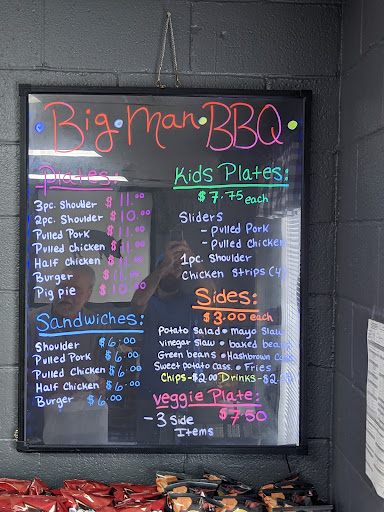 Big • Man • BBQ •
Plates:
3pc. Shoulder $11.00
2pc. Shoulder $10.00
Pulled Pork $11.00
Pulled Chicken $11.00
Half Chicken $11.00
Burger $11.00
Pig pie $10.00
Sandwiches:
Shoulder $6.00
Pulled Pork $6.00
Pulled Chicken $6.00
Half Chicken $6.00
Burger $6.00
Kids Plates:
$7.75 each
Sliders
- pulled Pork
- pulled Chicken
1pc. Shoulder
Chicken Strips (4)
Sides:
$3.00 each
Potato Salad • Mayo Slaw
Vinegar Slaw • baked beans
Green beans • Hashbrown Cass.
Sweet potato Cass. • Fries
Chips-$2.00 Drinks-$2.
Veggie Plate:
$7.50
- 3 Side
Items